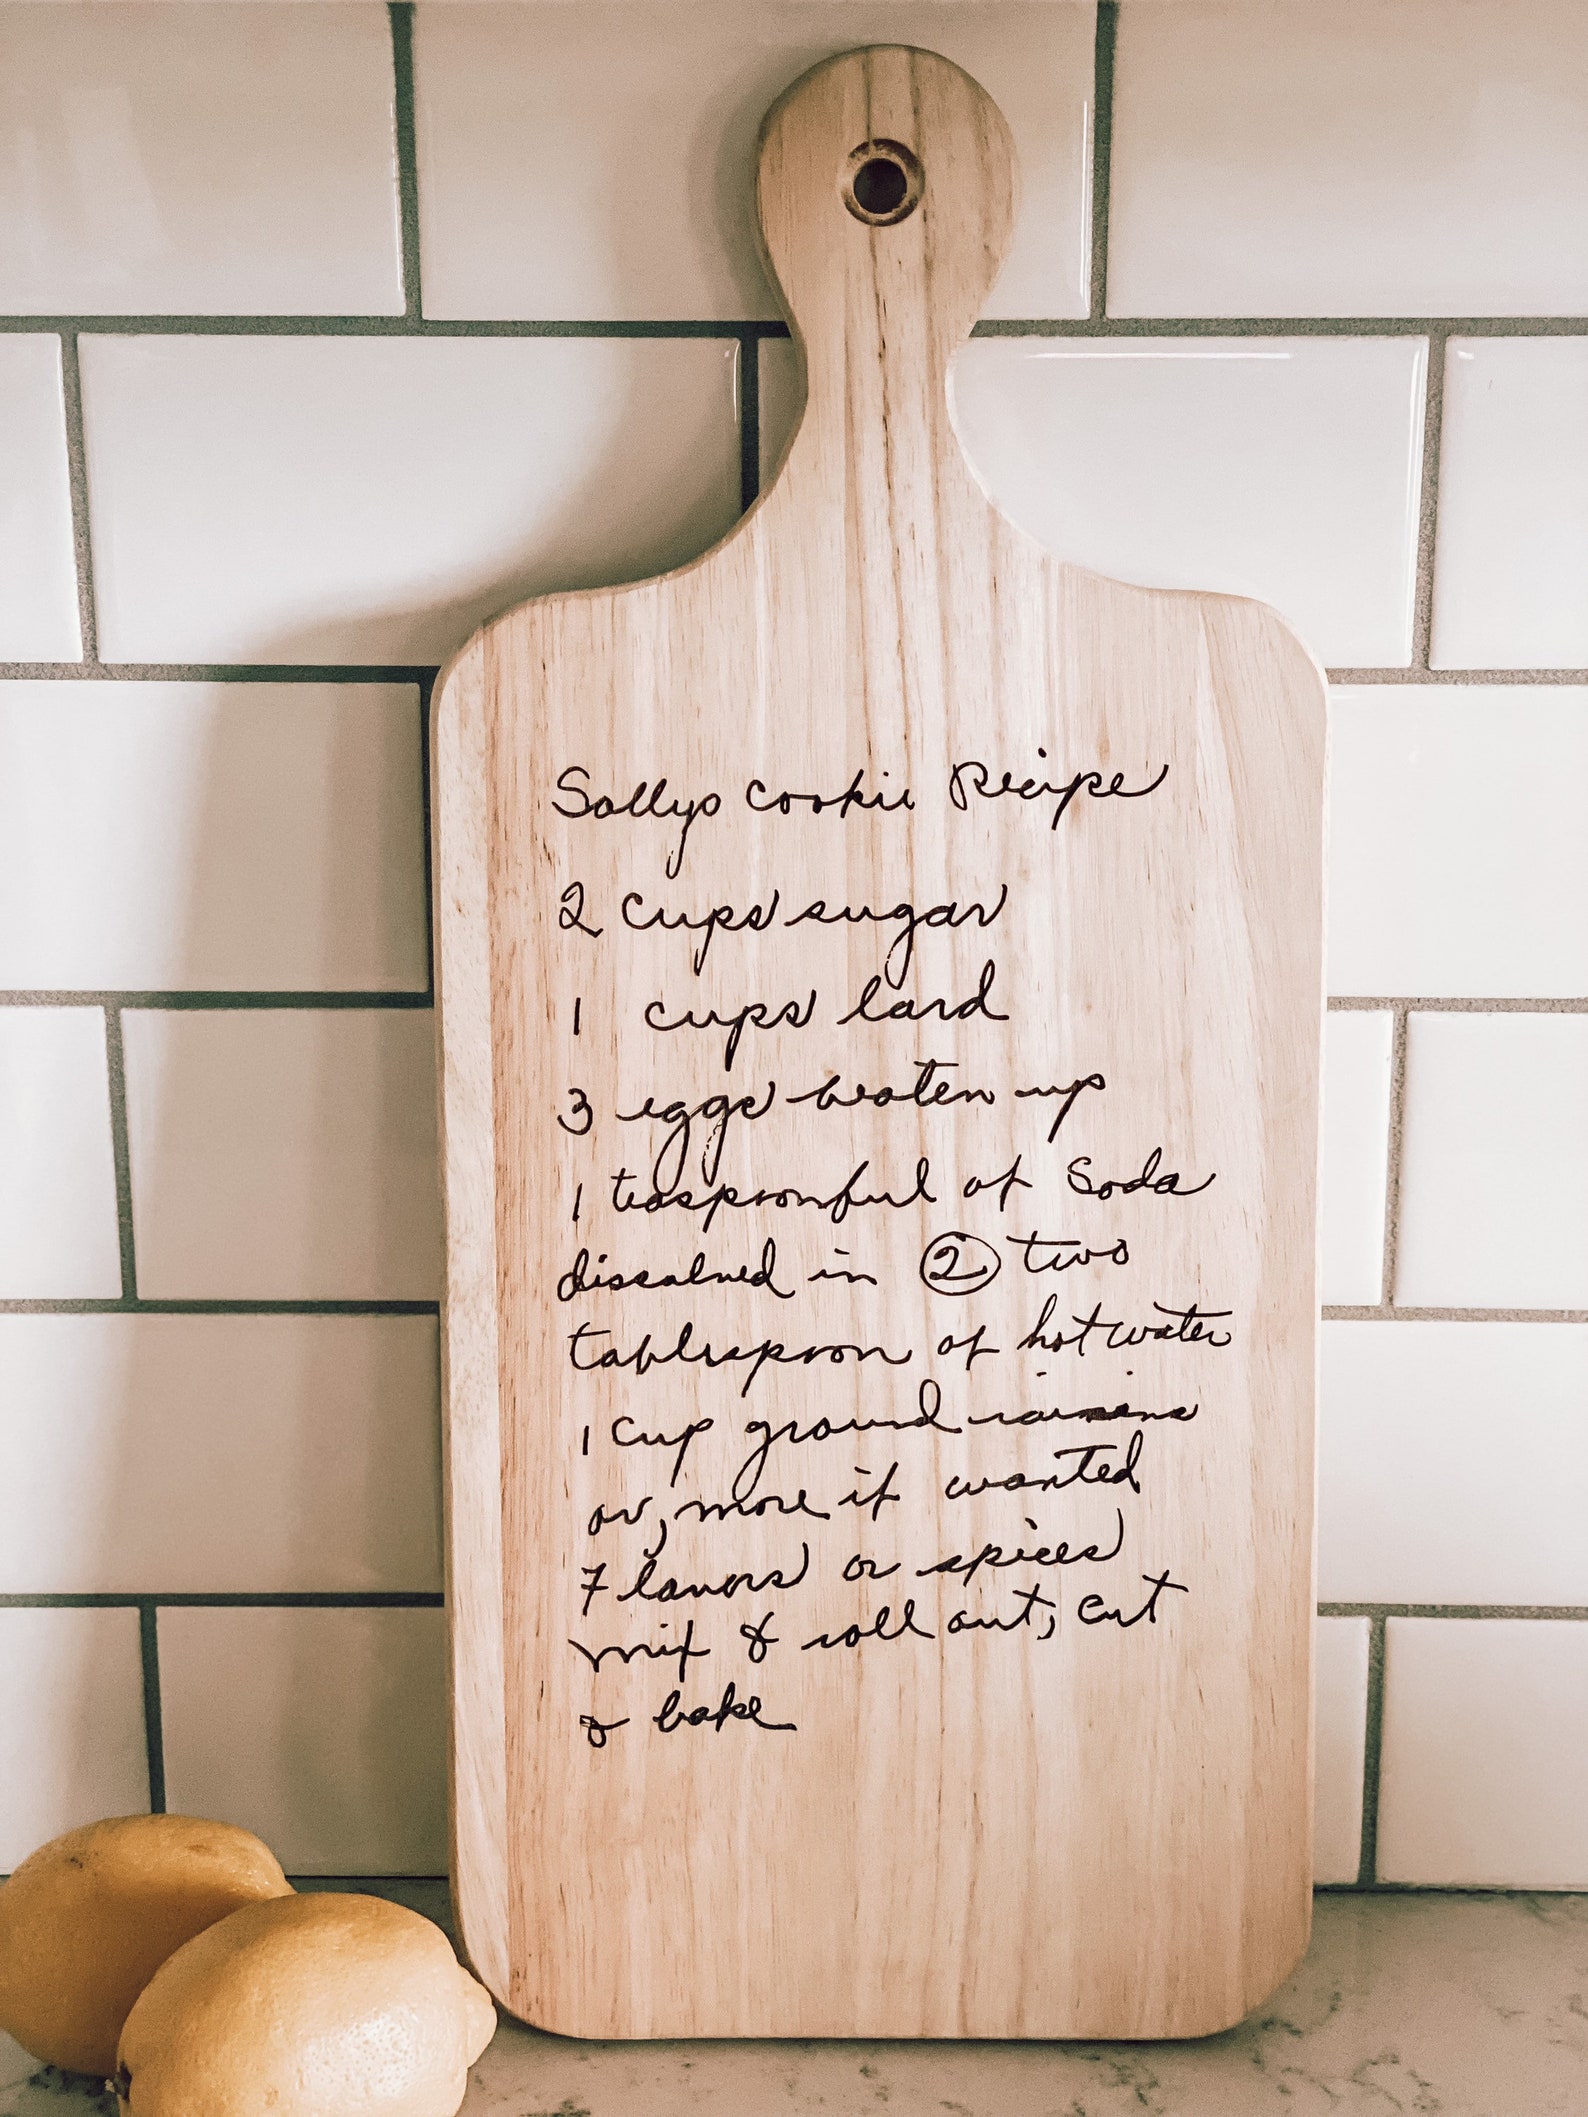 Sallys Cookie Recipe
2 cups sugar
1 cups lard
3 eggs beaten up
1 teaspoonful of Soda
dissolved in 2 two
tablespoon of hot water
1 cup ground raisins
or, more if wanted
Flavors or spices
mix & roll out, cut
& bake